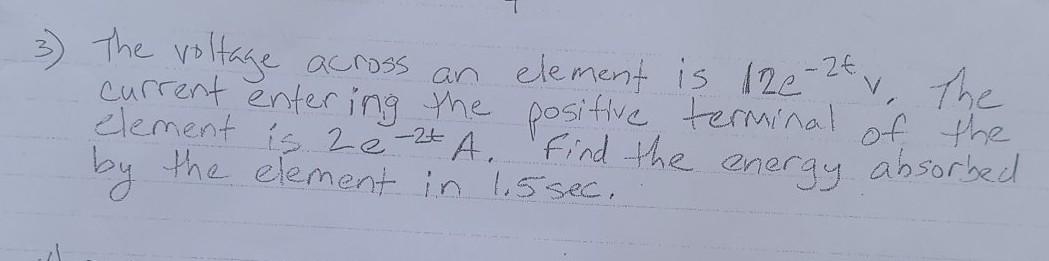 3) The voltage across an element is 12e^-2t v. The
current entering the positive terminal of the
element is 2e^-2t A. Find the energy absorbed
by the element in 1.5 sec.